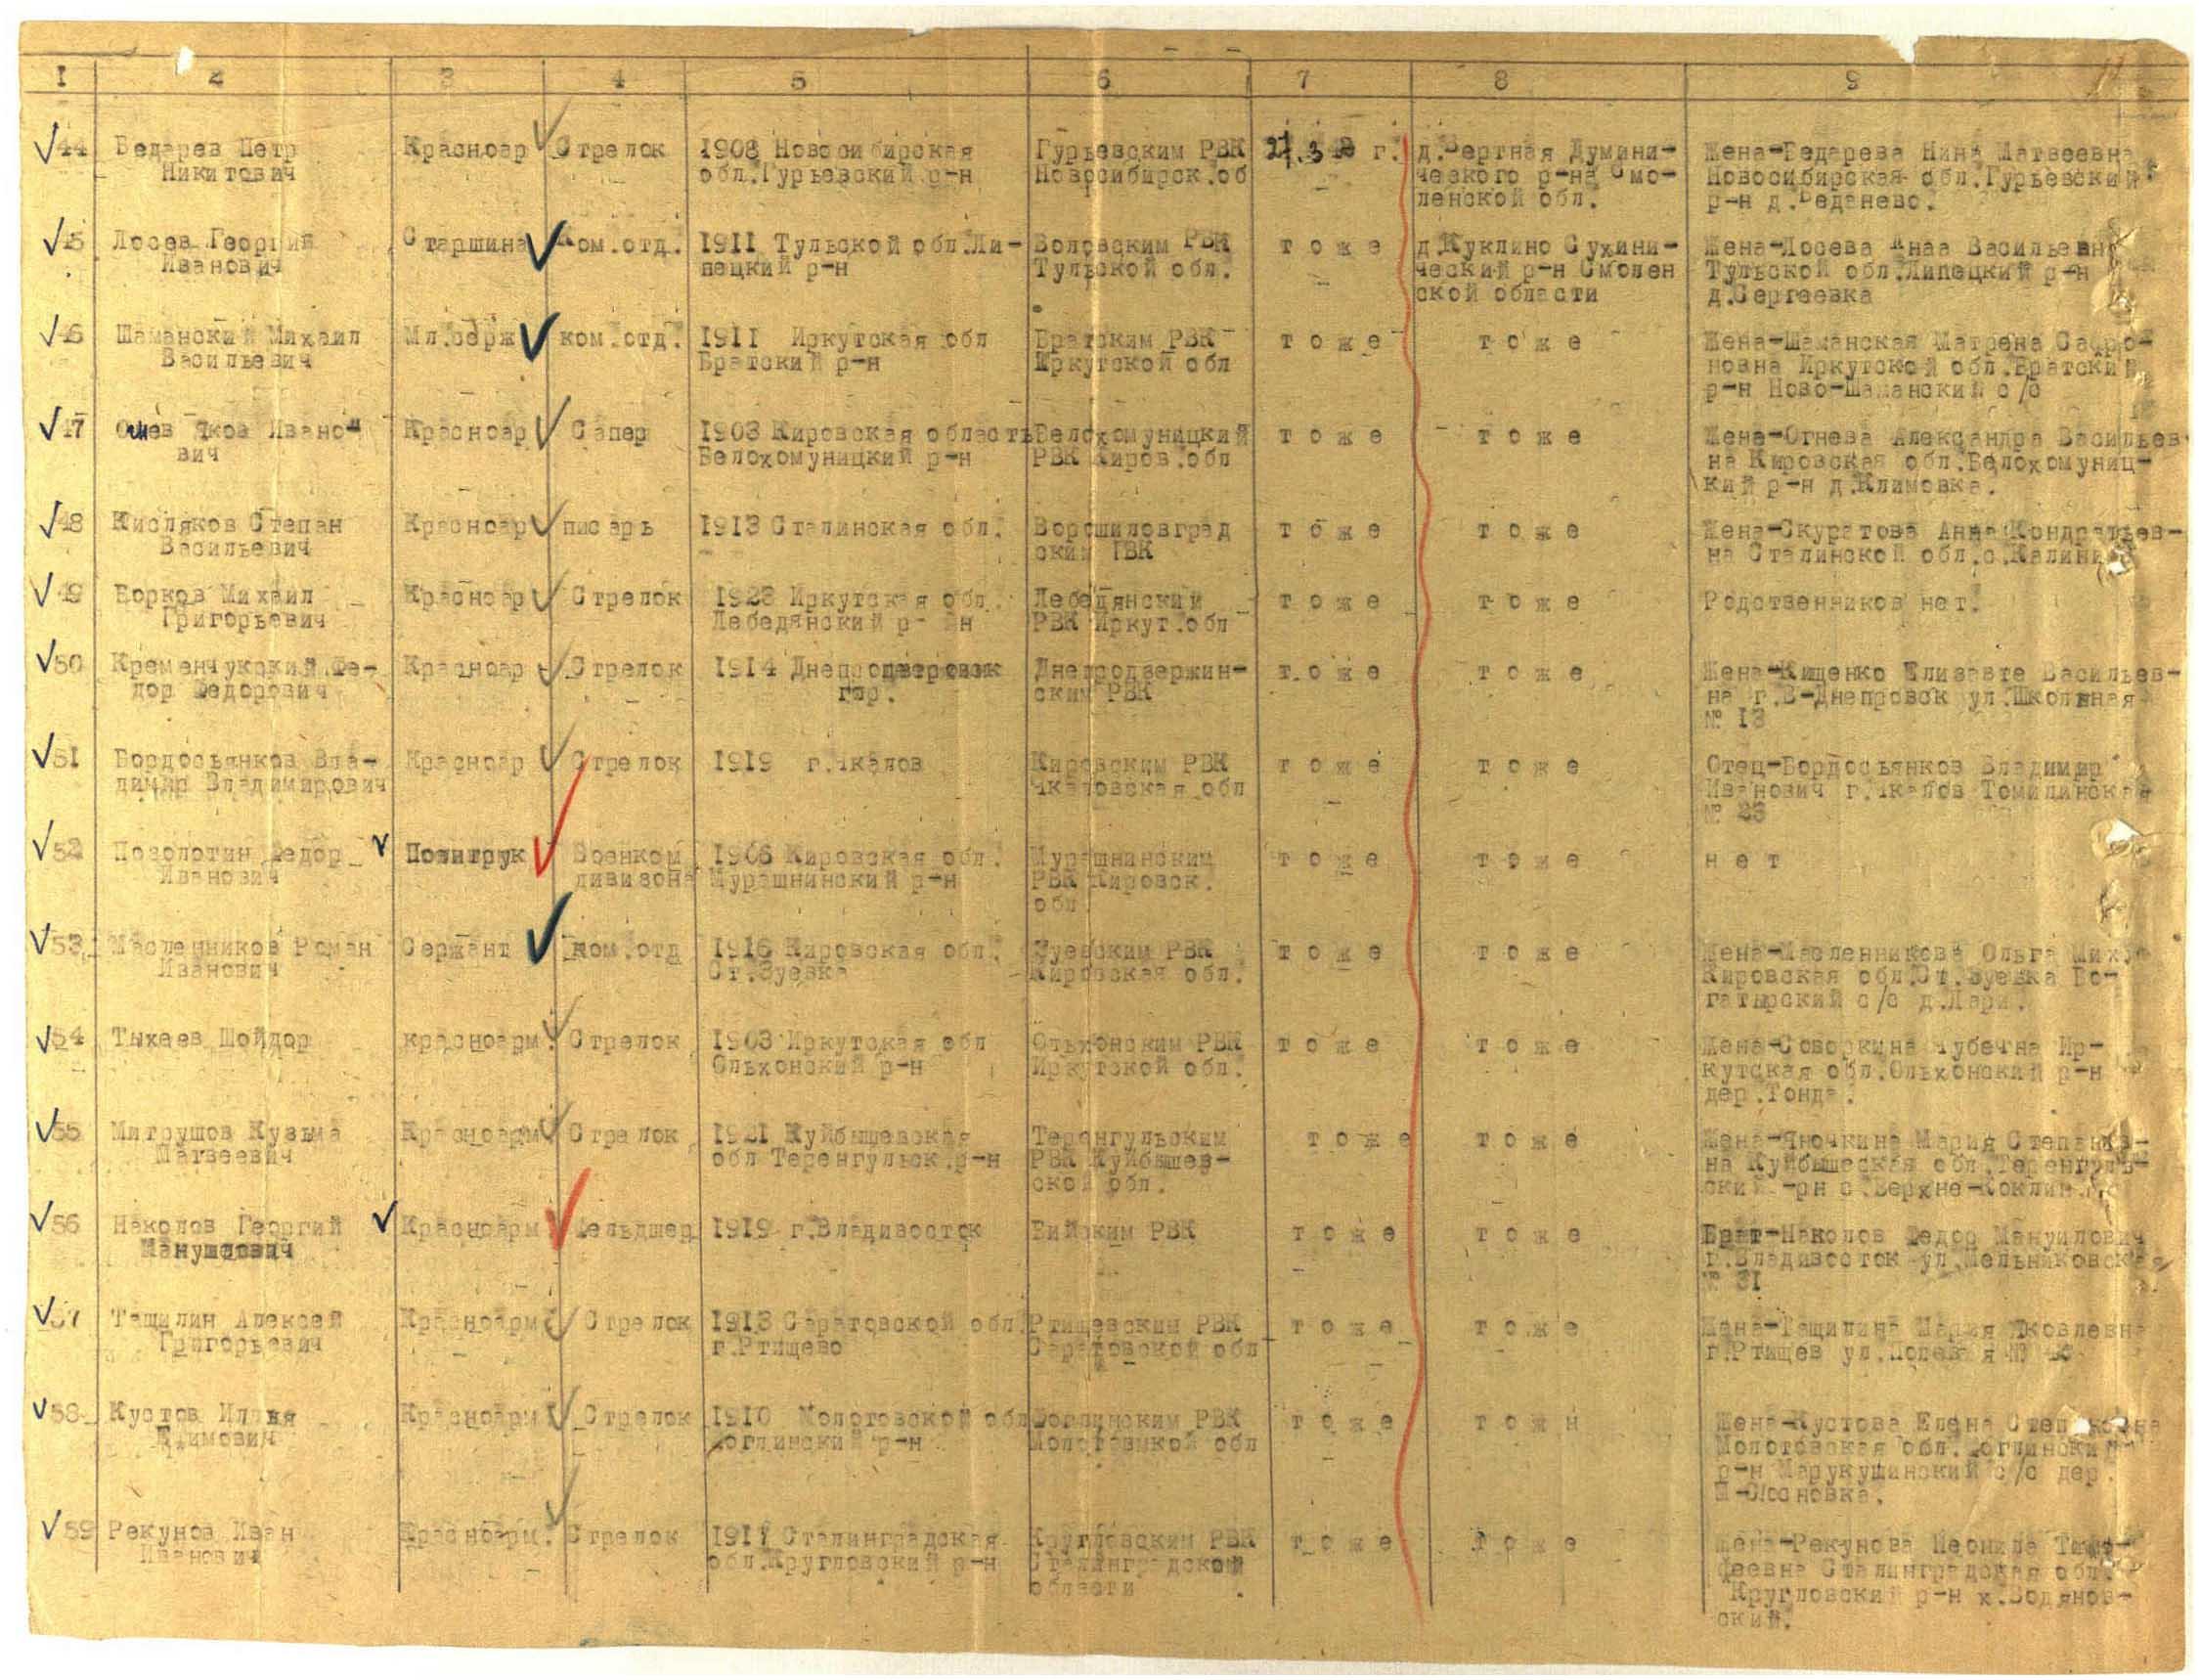 1 2 3 4 5 6 7 8 9
44 Бедарев Петр Красноар Стрелок 1908 Новосибирская Гурьевским РВК г. д.Вертная Думини- Жена-Бедарева Нина Матвеевна
Никитович обл.Гурьевский р-н Новосибирск.об ческого р-на Смо- Новосибирская обл.Гурьевский
ленской обл. р-н д.
45 Лосев Георгий Старшина Ком.отд. 1911 Тульской обл.Ли- Воловским РВК т о ж е д.Куклино Сухини- Жена-Лосева Анаа Васильевн
Иванович пецкий р-н Тульской обл. ческий р-н Смолен Тульской обл.Липецкий р-н
ской области д.Сергеевка
46 Шаманский Михаил Мл.серж ком.отд. 1911 Иркутская обл Братским РВК т о ж е т о ж е Жена-Шаманская Матрена Сафро-
Васильевич Братский р-н Иркутской обл новна Иркутской обл.Братский
р-н Ново-Шаманский с/с
47 Яков Ивано- Красноар Сапер 1903 Кировская область Белохомуницкий т о ж е т о ж е Жена-Огнева Александра Васильев
вич Белохомуницкий р-н РВК Киров.обл на Кировская обл.Белохомуниц-
кий р-н д.Климовка.
48 Кисляков Степан Красноар писарь 1913 Сталинская обл. Ворошиловград т о ж е т о ж е Жена-Скуратова Анна Кондратьев-
Васильевич ским ГВК на Сталинской обл.с.Калини
49 Борков Михаил Красноар Стрелок 1923 Иркутская обл. Лебедянский т о ж е т о ж е Родственников нет.
Григорьевич Лебедянский р- н РВК Иркут.обл
50 Кременчукский Фе- Красноар Стрелок 1914 Днепропетровск Днепродзержин- т о ж е т о ж е Жена-Кищенко Елизавте Васильев-
дор Федорович гор. ским РВК на г.В-Днепровск ул.Школьная
№ 13
51 Бордосьянков Вла- Красноар Стрелок 1919 г.Чкалов Кировским РВК т о ж е т о ж е Отец-Бордосьянков Владимир
димир Владимирович Чкаловская обл Иванович г.Чкалов Томилинская
№ 23
52 Позолотин Федор Политрук Военком 1906 Кировская обл. Мурашнинским т о ж е т о ж е н е т
Иванович дивизона Мурашнинский р-н РВК Кировск.
обл
53 Масленников Роман Сержант ком.отд 1916 Кировская обл. Зуевским РВК т о ж е т о ж е Жена-Масленникова Ольга Мих.
Иванович Ст.Зуевка Кировская обл. Кировская обл.Ст.Зуевка Бо-
гатырский с/с д.Лари.
54 Тыхеев Шойдор красноарм. Стрелок 1903 Иркутская обл Ольхонским РВК т о ж е т о ж е Жена-Соворкина Ир-
Ольхонский р-н Иркутской обл. кутская обл.Ольхонский р-н
дер.Тонда.
55 Митрушов Кузьма Красноарм Стрелок 1921 Куйбышевская Теренгульским т о ж е т о ж е Жена-Яночкина Мария Степанов-
Матвеевич обл Теренгульск.р-н РВК Куйбышев- на обл.Теренгуль-
ской обл. ский -рн с.Верхне-
56 Наколов Георгий Красноарм Фельдшер 1919 г.Владивосток Бийским РВК т о ж е т о ж е Брат-Наколов Федор Мануилович
г.Владивосток ул.Мельниковская
№ 31
57 Тащилин Алексей Красноарм Стрелок 1913 Саратовской обл. Ртищевским РВК т о ж е т о ж е Жена-Тащилина Мария Яковлевна
Григорьевич г.Ртищево Саратовской обл г.Ртищев ул.Полевая №
58 Кустов Красноарм Стрелок 1910 Молотовской обл РВК т о ж е т о ж н Жена-Кустова Елена
Ефимович р-н обл Молотовская обл.
р-н Марукушинский с/с дер.
59 Рекунов Иван Красноарм. Стрелок 1917 Сталинградская Кругловским РВК т о ж е т о ж е Жена-Рекунова Неонила
Иванович обл.Кругловский р-н Сталинградской феевна Сталинградская обл.
области Кругловский р-н х.Водянов-
ский.